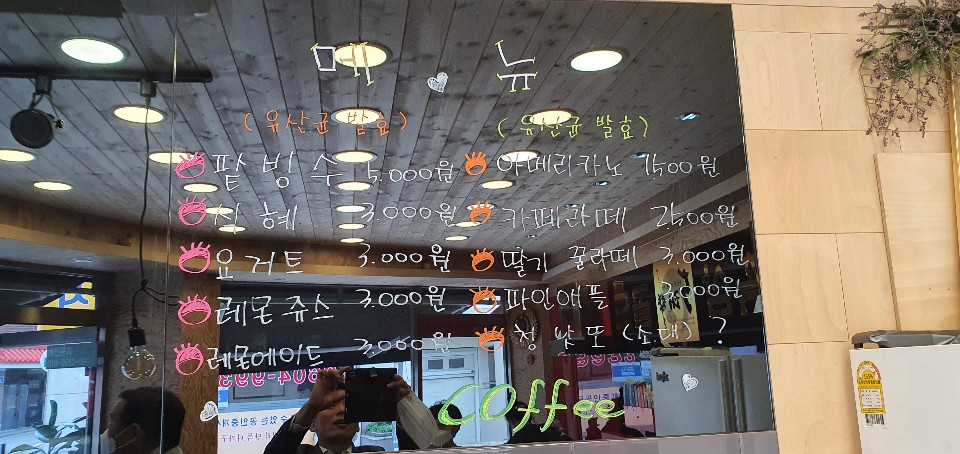 메뉴
(유산균 발효) (유산균 발효)
팥빙수 5,000원 아메리카노 1,500원
식혜 3.000원 카페라떼 2,500원
요거트 3.000원 딸기 꿀라떼 3.000원
레몬쥬스 3.000원 파인애플 3.000원
레몬에이드 3.000원 청 낫또 (소대) ?
coffee